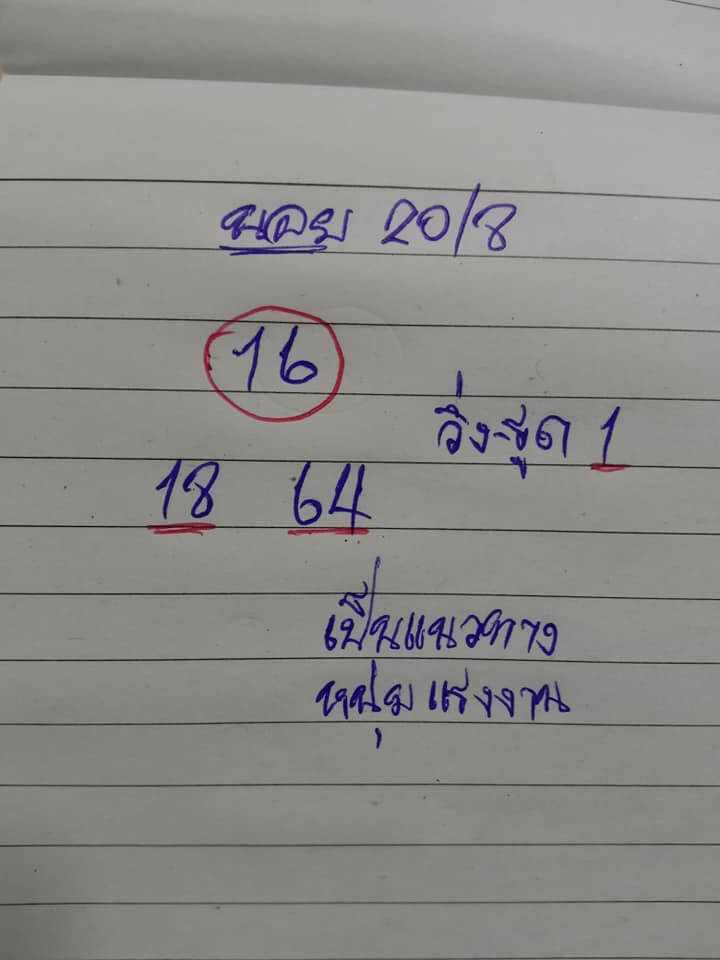 นอย 20/8
16
วิ่ง-รูด 1
18 64
เป็นแนวทาง
หนุ่มแรงงาน